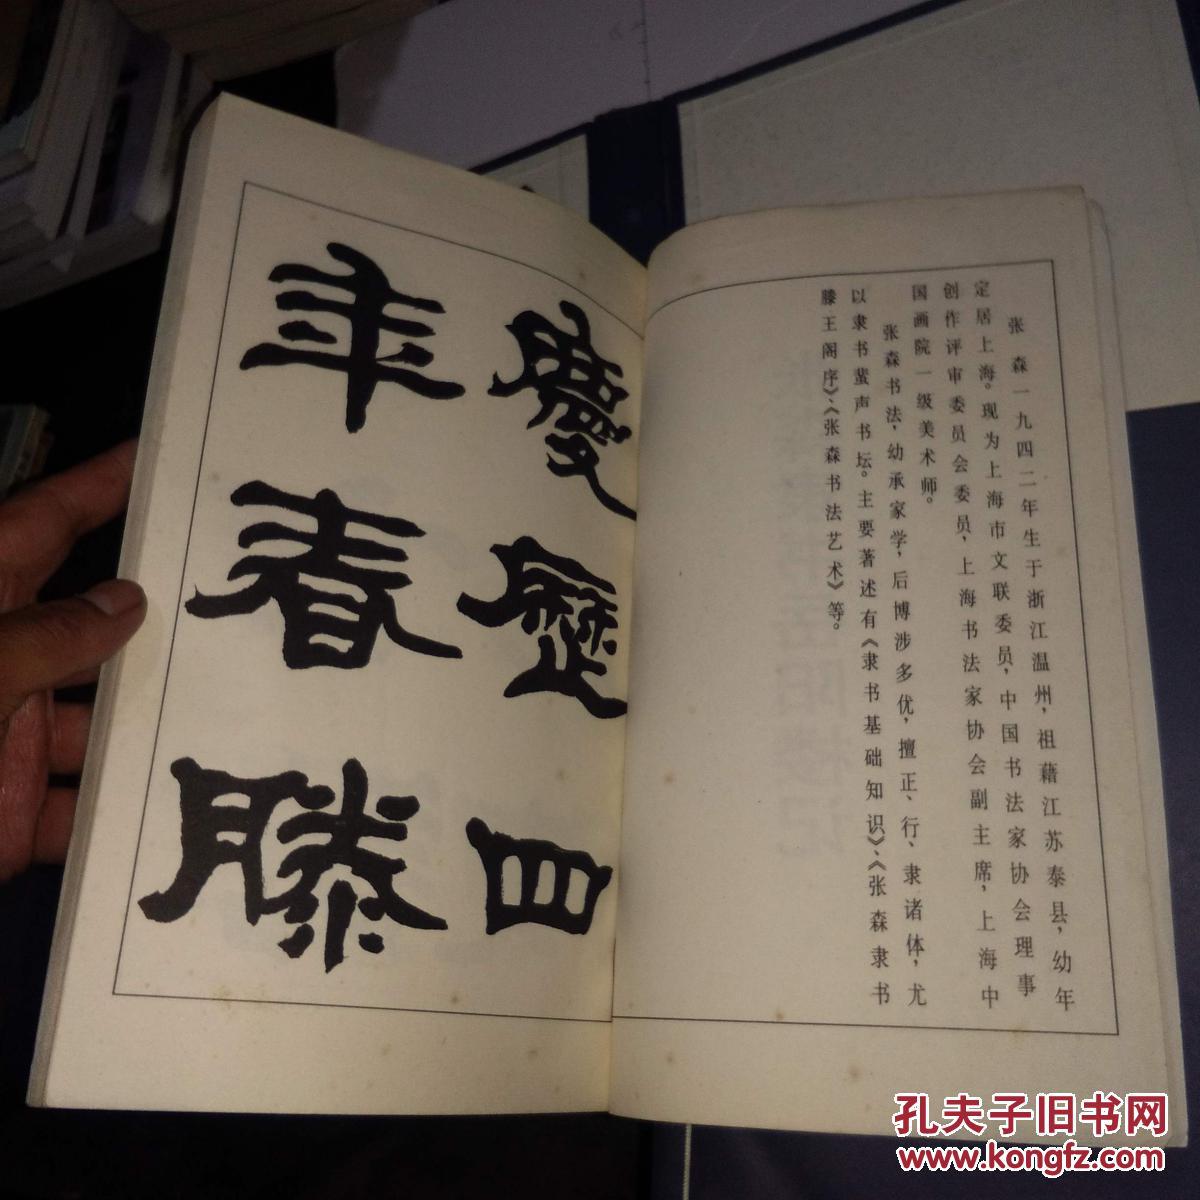 张森一九四二年生于浙江温州，祖藉江苏泰县，幼年
定居上海。现为上海市文联委员，中国书法家协会理事
创作评审委员会委员，上海书法家协会副主席，上海中
国画院一级美术师。
张森书法，幼承家学，后博涉多优，擅正、行、隶诸体，尤
以隶书蜚声书坛。主要著述有《隶书基础知识》、《张森隶书
滕王阁序》、《张森书法艺术》等。
慶歷四
年春滕
孔夫子旧书网
www.kongfz.com